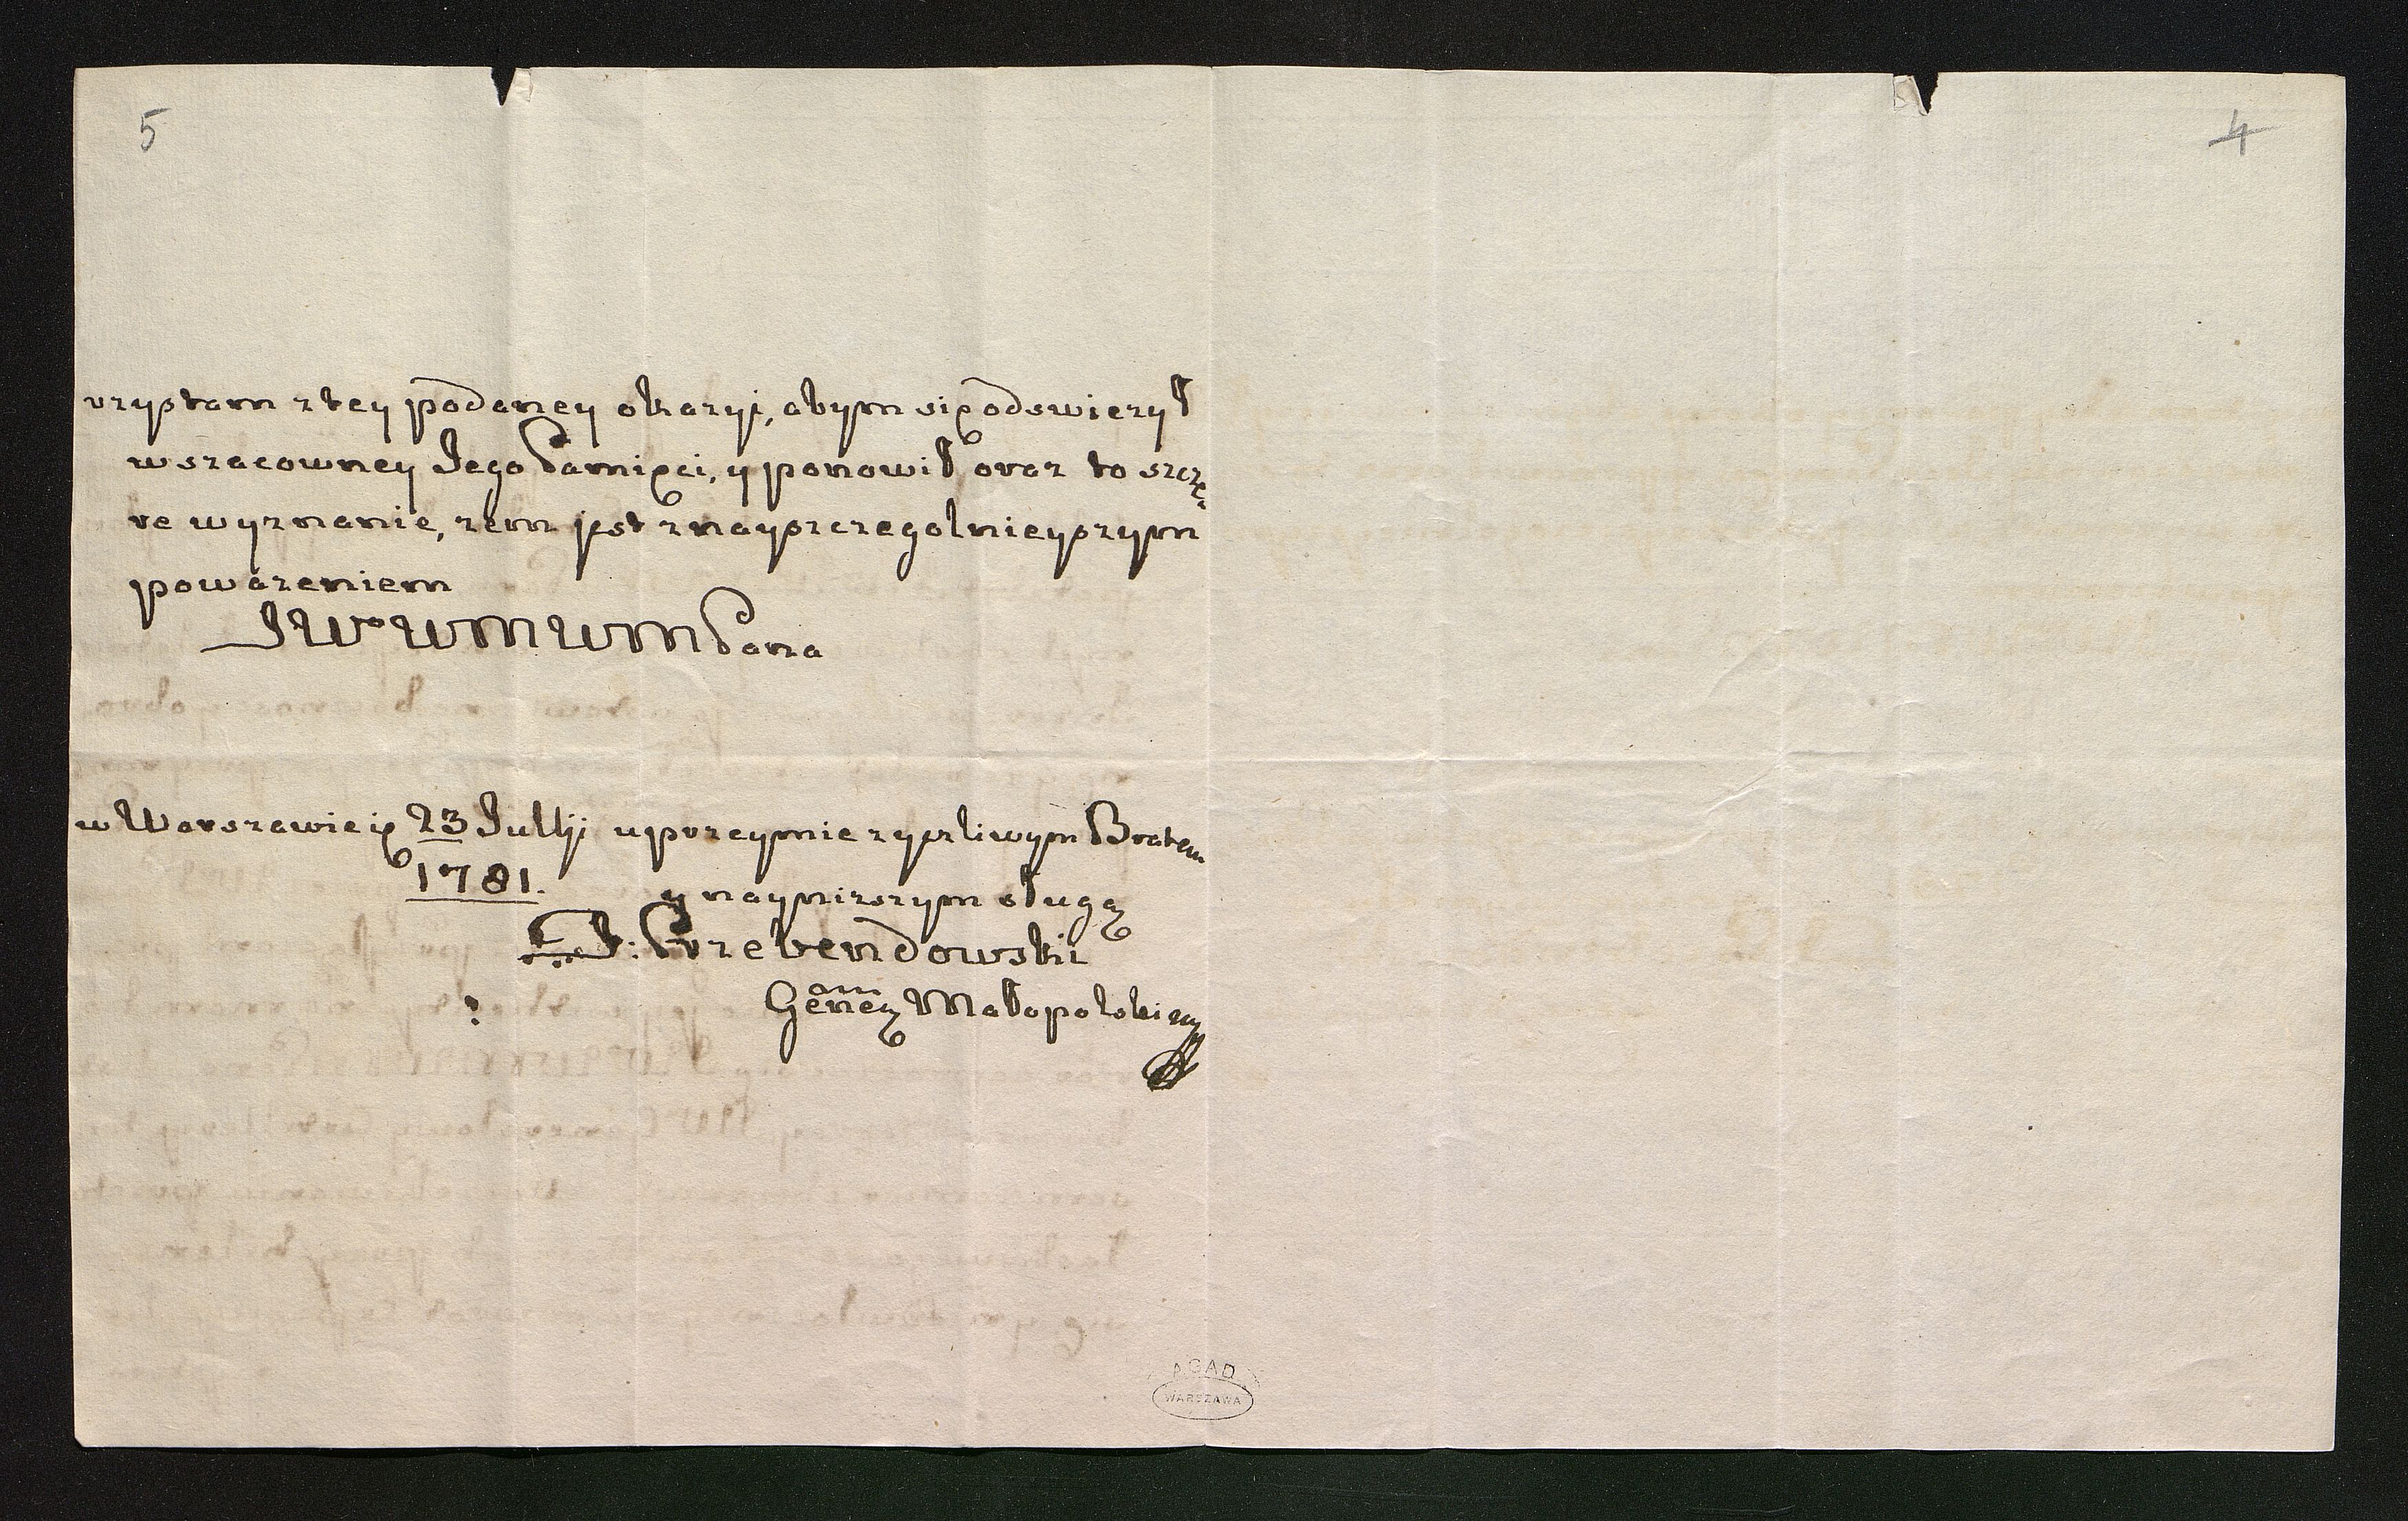 5
4
rzystam z tey podaney okazyi, abym się odswiezył
w szacowney Jego Pamięci, y ponowił oraz to szcze,,
re wyznanie, zem jest z nayszczegolnieyszym
powazeniem
JWo WM WM Pana
w Warszawie 23 Julij uprzeymie zyczliwym Bratem
1781.
y nayniszszym sługą
J: Przebendowski
Małopolskiey
AGAD
WARSZAWA